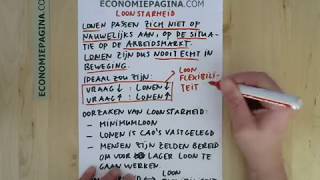 ECONOMIEPAGINA.COM
ECONOMIEPAGINA.COM
LOONSTARHEID
LONEN PASSEN ZICH NIET OF
NAUWELIJKS AAN, OP DE SITUA-
TIE OP DE ARBEIDSMARKT.
LONEN ZIJN DUS NOOIT ECHT IN
BEWEGING.
IDEAAL ZOU ZIJN:
VRAAG ↓ : LONEN ↓
VRAAG ↑ : LONEN ↑
LOON
FLEXIBILI-
TEIT
OORZAKEN VAN LOONSTARHEID:
- MINIMUMLOON
- LONEN IN CAO'S VASTGELEGD
- MENSEN ZIJN ZELDEN BEREID
OM VOOR LAGER LOON TE
GAAN WERKEN.
LOON